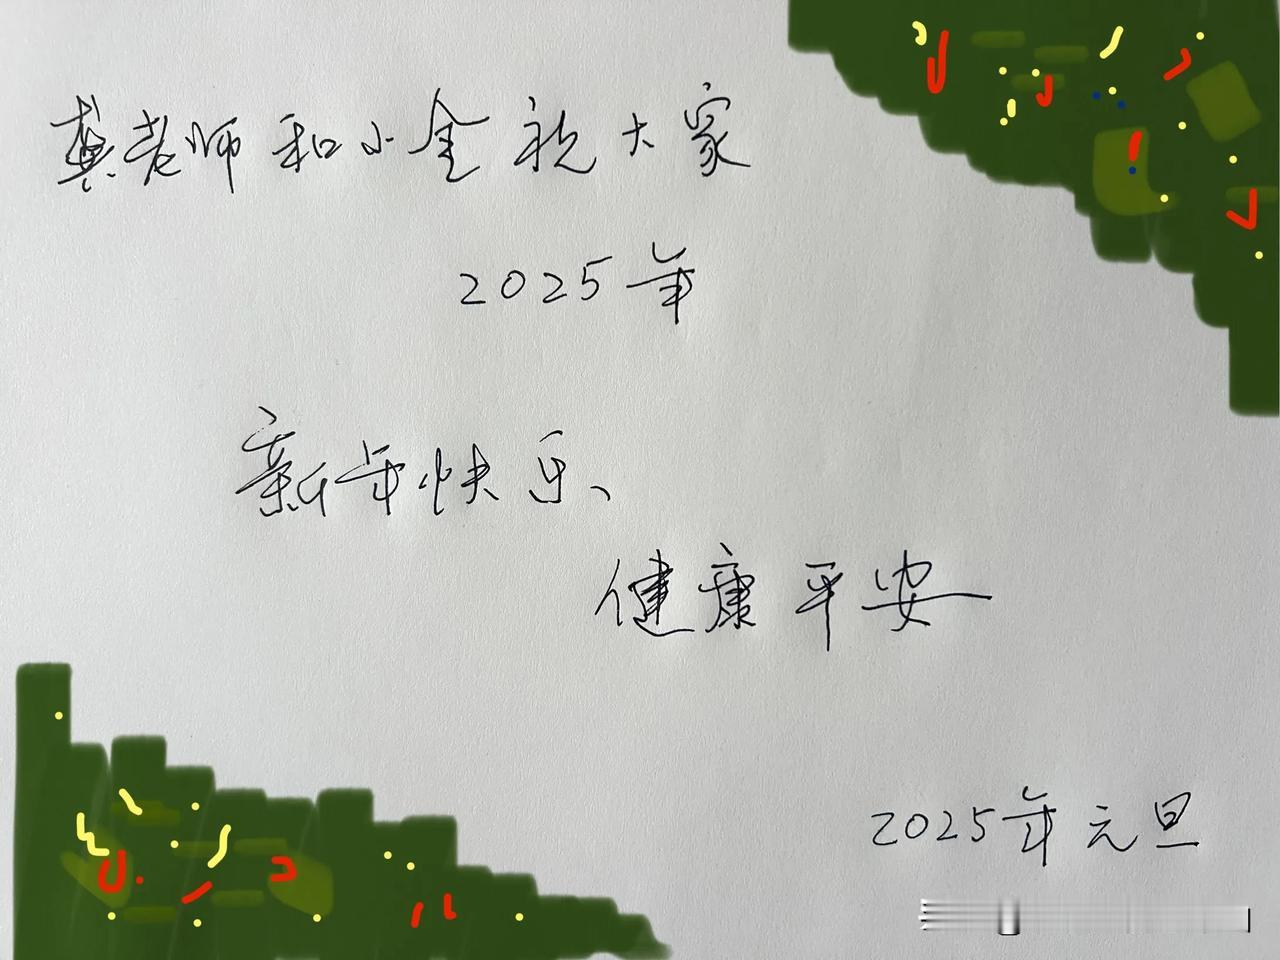 龚老师和小金祝大家
2025年
新年快乐、
健康平安
2025年元旦